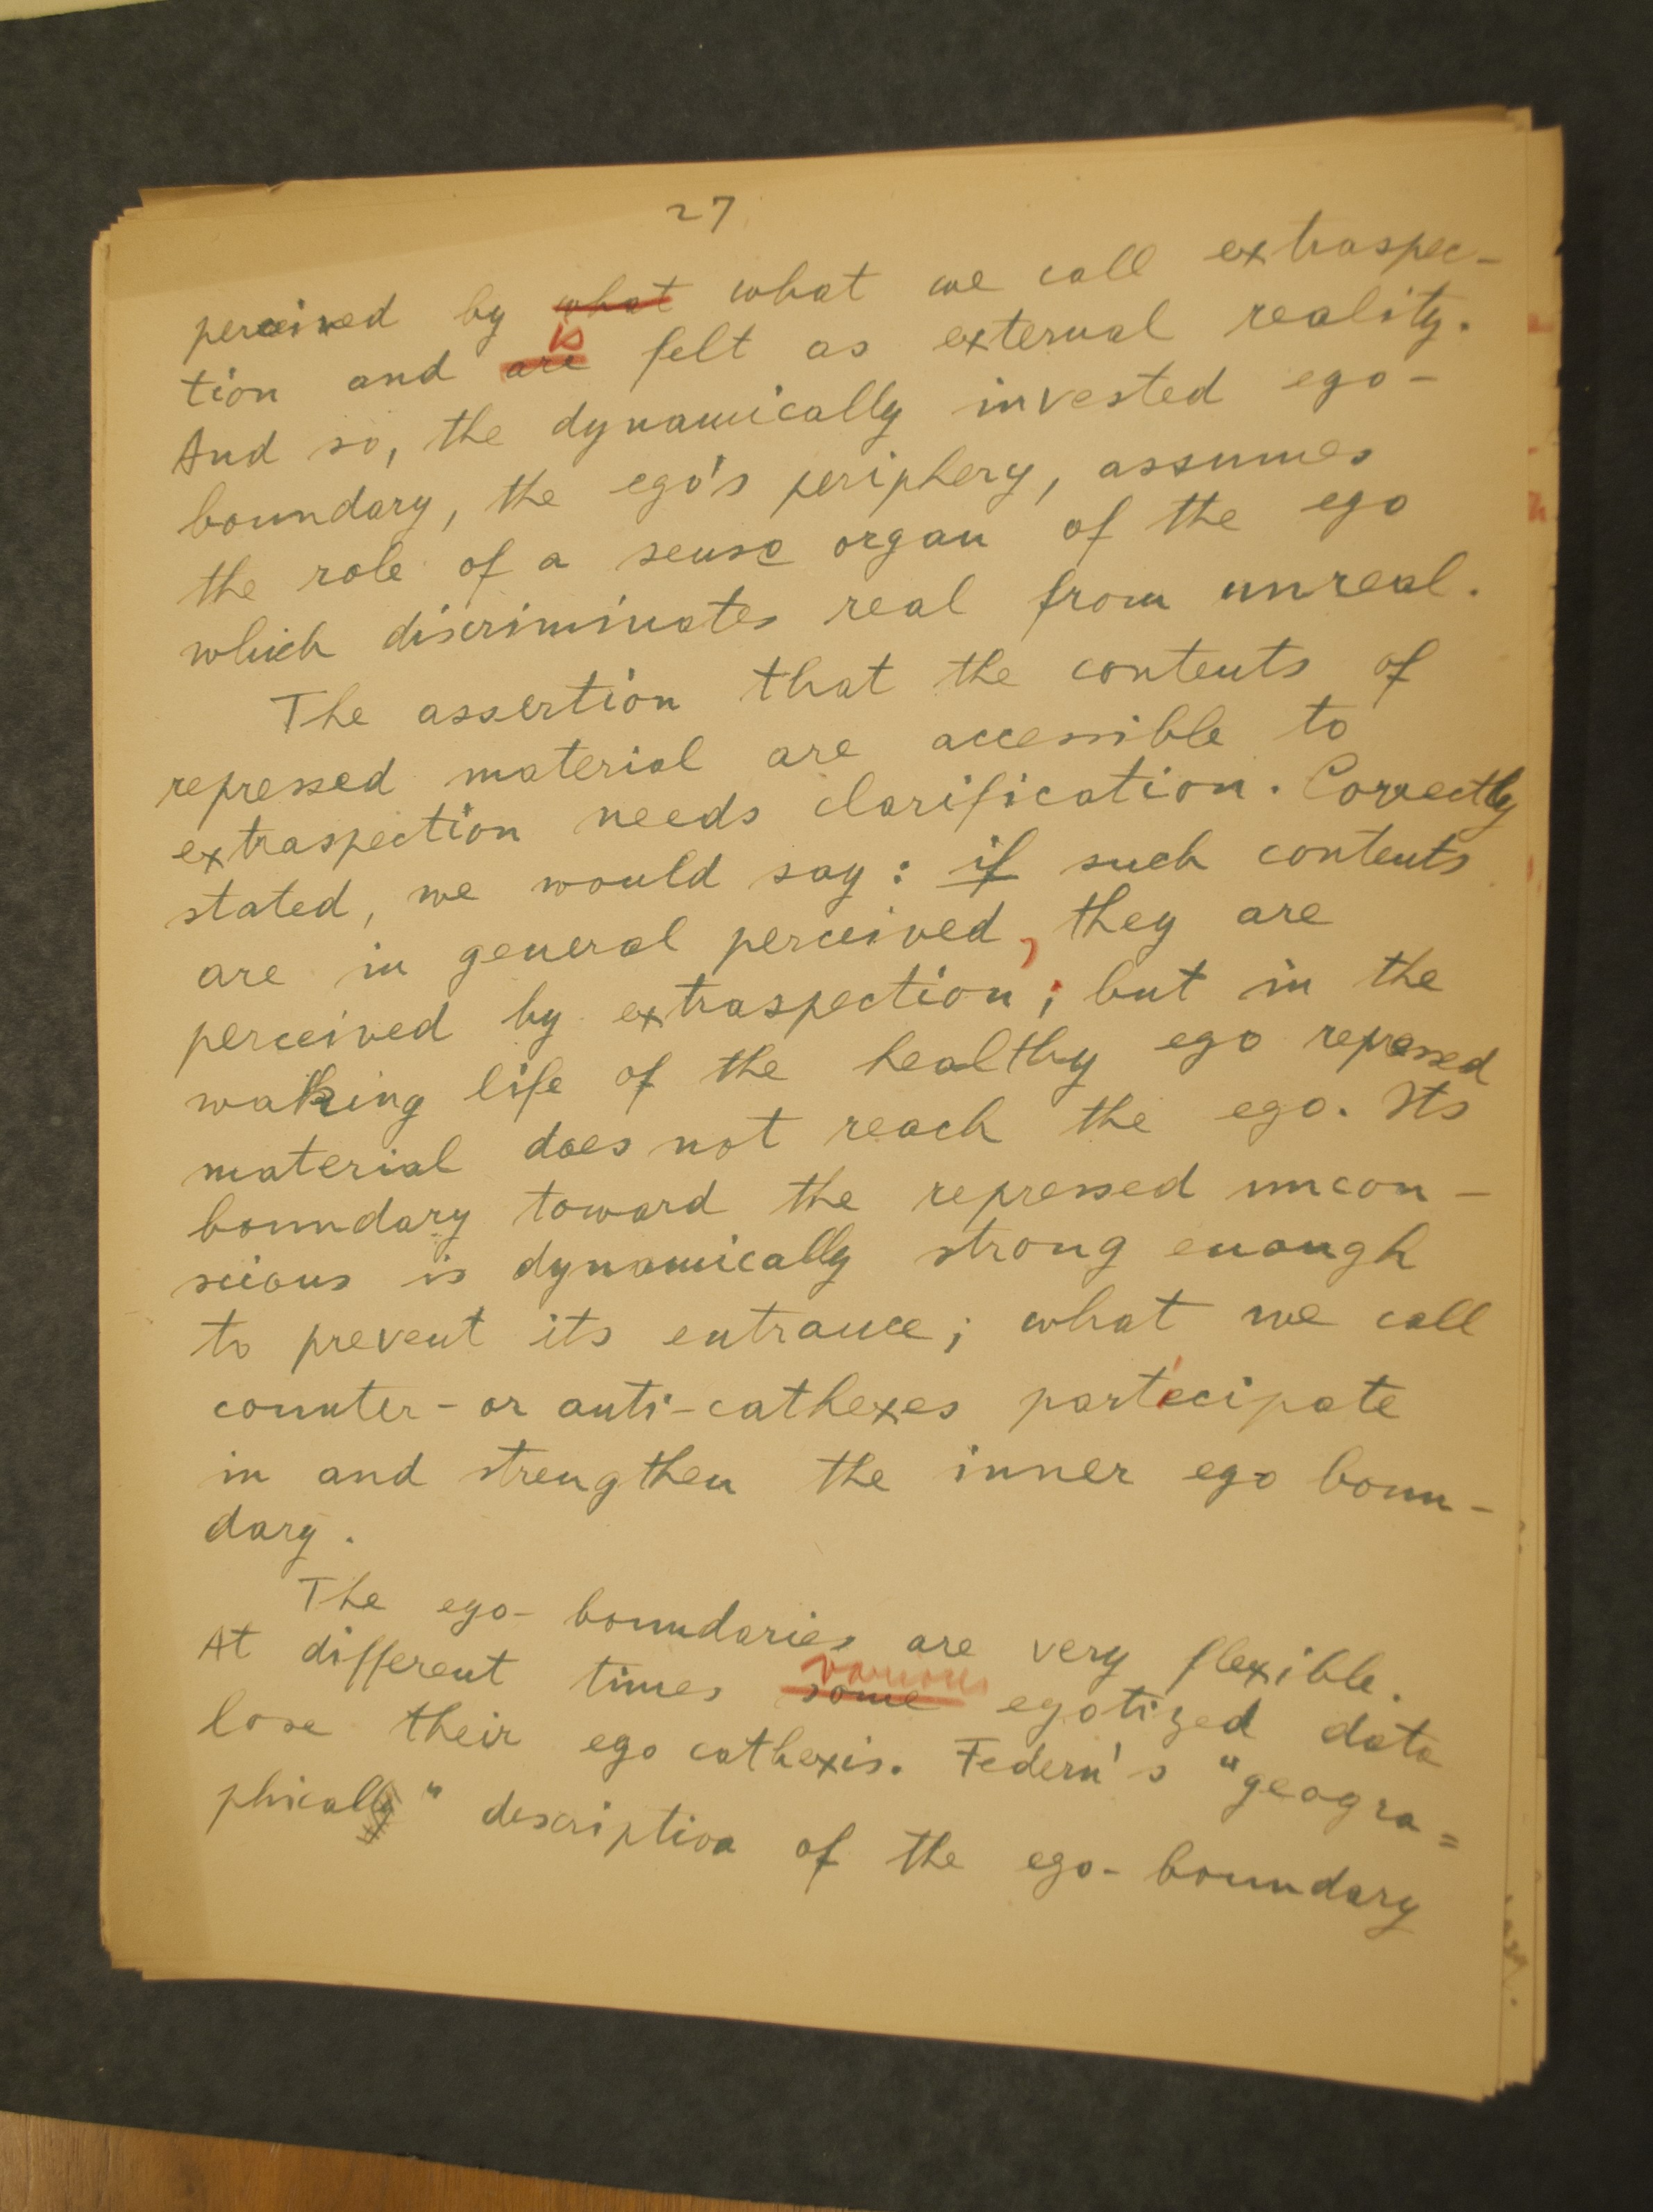 27
perceived by what what we call extraspec-
tion and are is felt as external reality.
And so, the dynamically invested ego-
boundary, the ego's periphery, assumes
the role of a sense organ of the ego
which discriminates real from unreal.
The assertion that the contents of
repressed material are accessible to
extraspection needs clarification. Correctly
stated, we would say: if such contents
are in general perceived, they are
perceived by extraspection; but in the
waking life of the healthy ego repressed
material does not reach the ego. Its
boundary toward the repressed uncon-
scious is dynamically strong enough
to prevent its entrance; what we call
counter- or anti-cathexes participate
in and strengthen the inner ego boun-
dary.
The ego-boundaries are very flexible.
At different times some various egotized data
lose their ego cathexis. Federn's "geogra=
phically" description of the ego-boundary